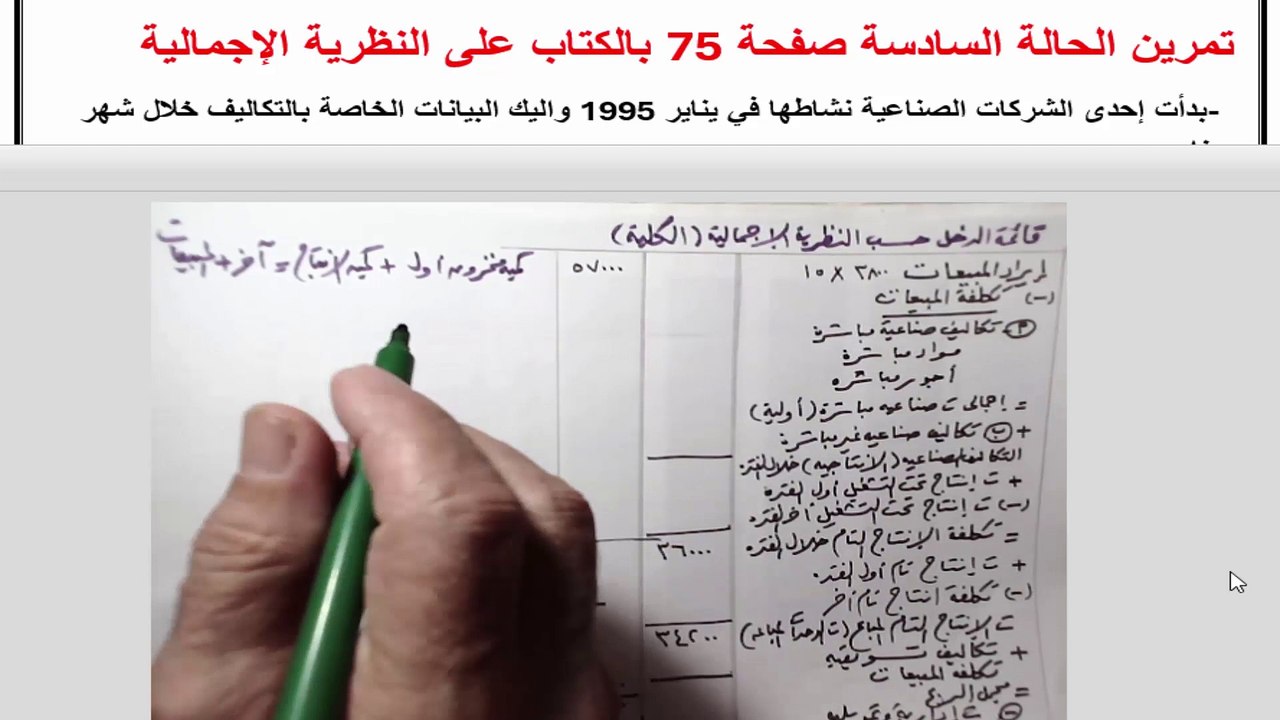 تمرين الحالة السادسة صفحة 75 بالكتاب على النظرية الإجمالية
-بدأت إحدى الشركات الصناعية نشاطها في يناير 1995 واليك البيانات الخاصة بالتكاليف خلال شهر
قائمة الدخل حسب النظرية الإجمالية (الكلية)
إيراد المبيعات ٣٨٠٠ × ١٥ ٥٧٠٠٠
كمية مخزون أول + كمية الإنتاج = آخر + المبيعات
(-) تكلفة المبيعات
تكاليف صناعية مباشرة
مواد مباشرة
أجور مباشرة
= إجمالى ت صناعيه مباشرة (أولية)
+ (ب) تكاليف صناعيه غير مباشرة
التكاليف الصناعيه (الإنتاجيه) خلال الفتره
+ ت إنتاج تحت التشغيل أول الفتره
(-) ت إنتاج تحت التشغيل آخر الفتره
= تكلفة الإنتاج التام خلال الفتره ٣٦٠٠٠
+ ت إنتاج تام أول الفتره
(-) تكلفة انتاج تام آخر
ت الإنتاج التام المباع (ت الوحدات المباعه) ٣٤٢٠٠
+ تكاليف تسويقيه
تكلفه المبيعات
= مجمل الربح
(-) ت إدارية وتمويليه